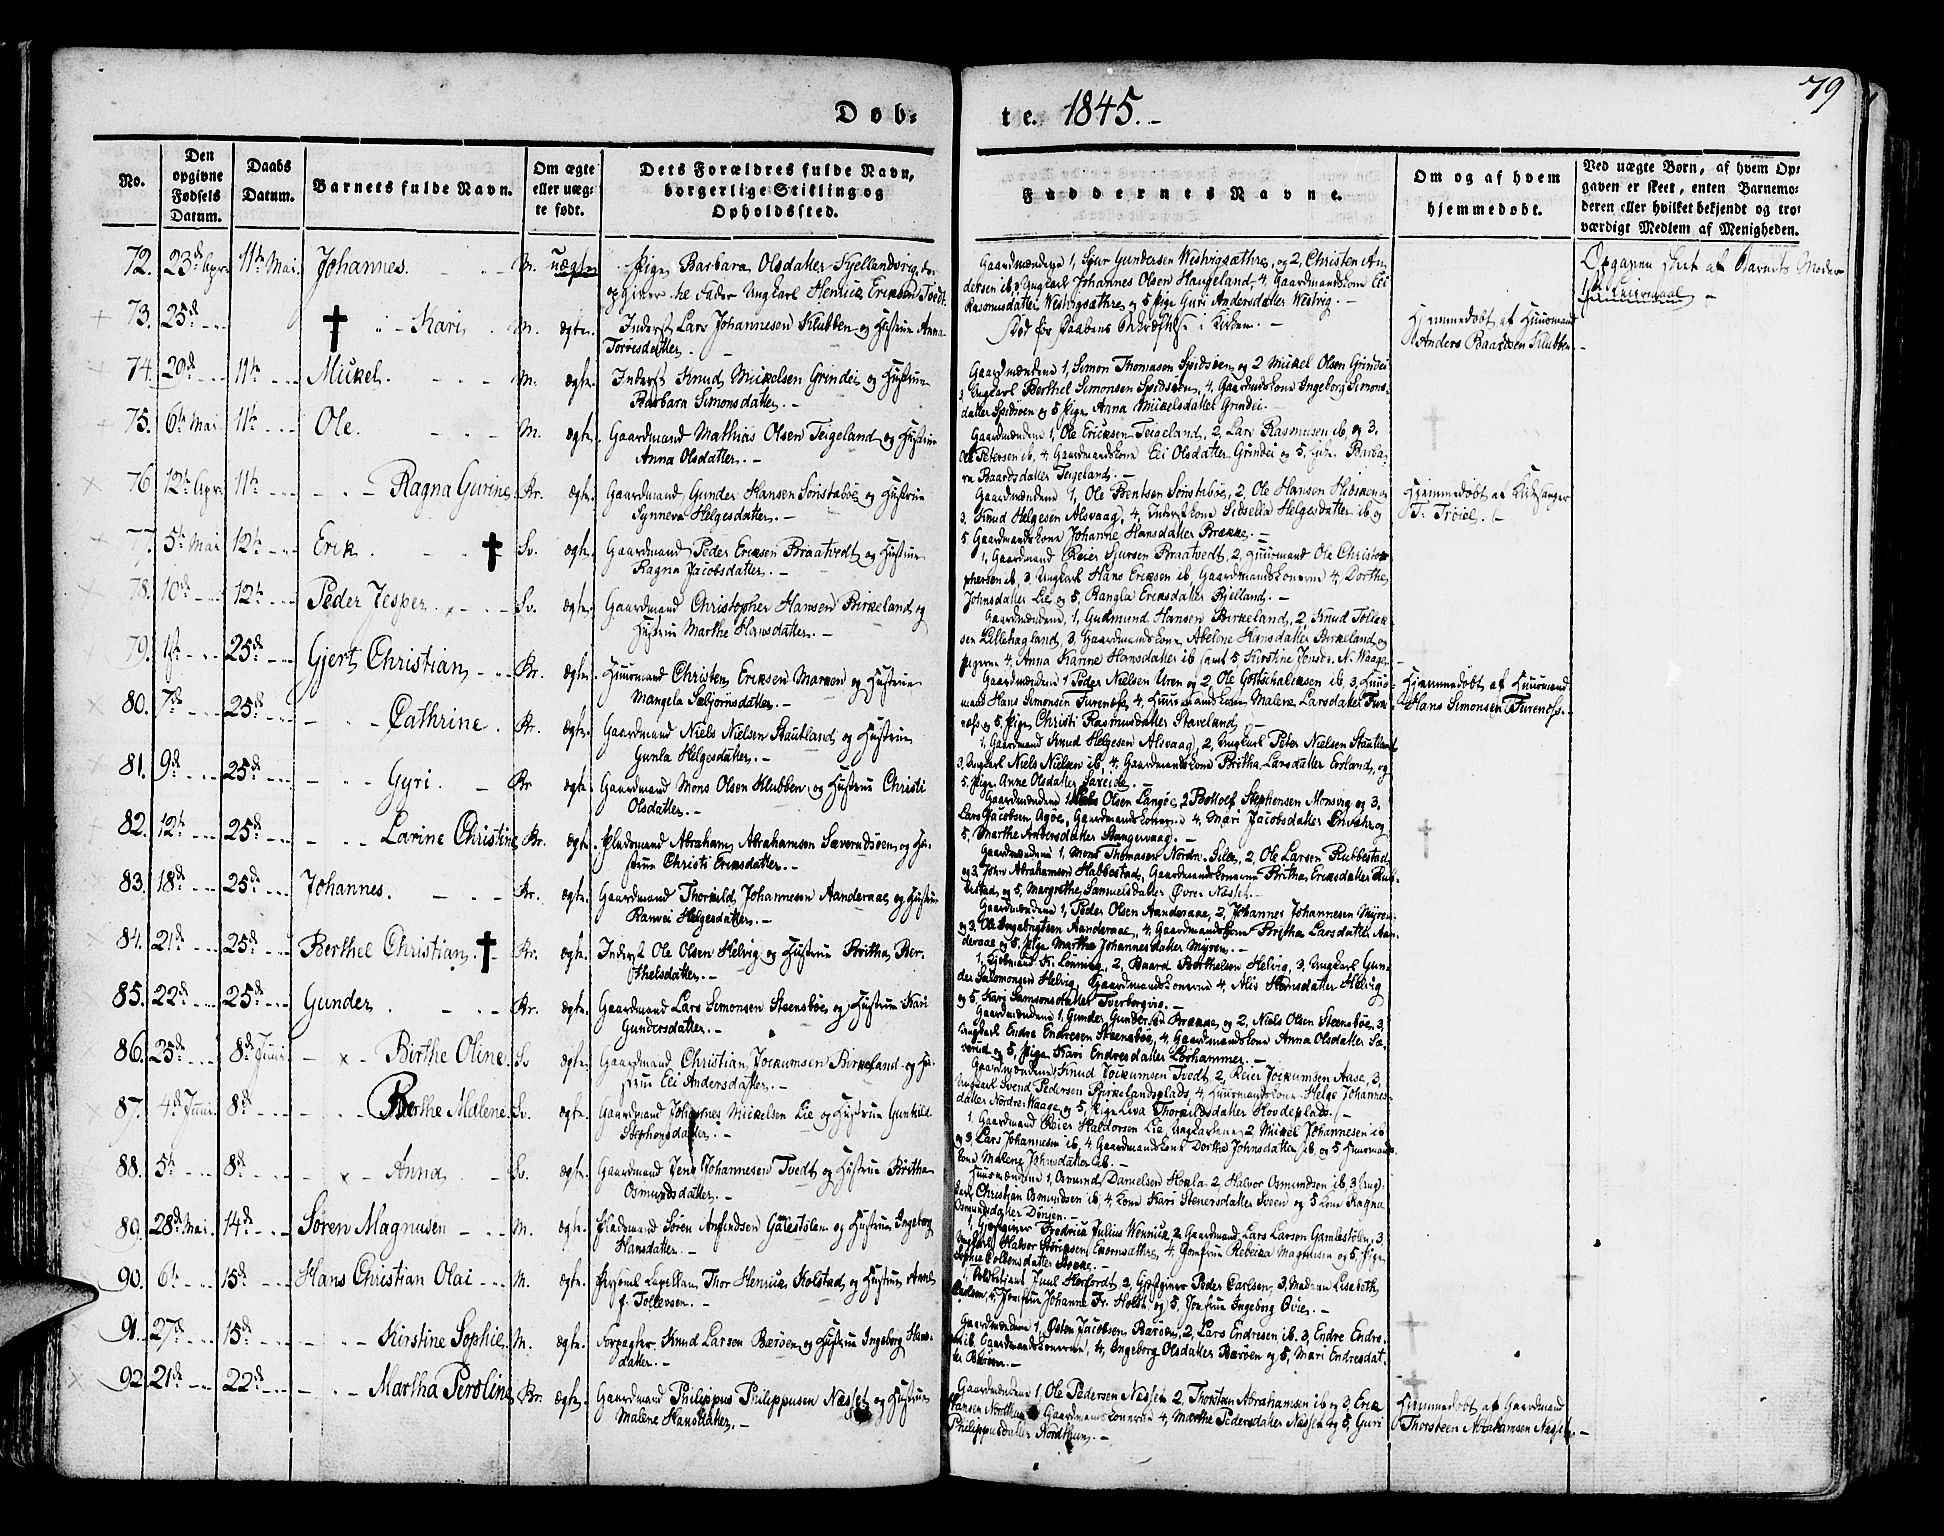 79
Døb-
te. 1845.-
No.
Den opgivne Fødsels Datum.
Daabs Datum.
Barnets fulde Navn.
Om ægte eller uæg-te født.
Dets Forældres fulde Navn, borgerlige Stilling og Opholdssted.
Faddernes Navne.
Om og af hvem hjemmedøbt.
Ved uægte Børn, af hvem Op-gaven er skeet, enten Barnemo-deren eller hvilket bekjendt og tro-værdigt Medlem af Menigheden.
72. 23de Apr. 11te Mai. Johannes. M. uægte Pige Barbara Olsdatter Kjellandsvig, der
opgiver til Fader Ungkarl Henrick Ericksen Tvedt
Gaardmændene 1, Sjur Gundersen Westvigsæthre, og 2, Christen An-
dersen ib. 3 Ungkarl Johannes Olsen Haugeland, 4, Gaardmandskone Eli
Rasmusdatter Westvigsæthre og 5 Pige Guri Andersdatter Westvig.
Opgaven skeet af Barnets Moder
73. 25de Kari M. ægte. Inderst Lars Johannesen Klubben og Hustrue Anna
Toresdatter.
Død før Daabens Bekræftelse i Kirken.
Hjemmedøbt af Huusmand
Anders Baardsen Klubben
74. 29de 11te Mickel. M. ægte. Inderst Knud Mickelsen Grindei og Hustrue
Barbara Simonsdatter.
Gaardmændene 1, Simon Thomasen Spidsøen og 2 Mickel Olsen Grindei
3, Ungkarl Berthel Simonsen Spidsøen, 4, Gaardmandskone Ingeborg Simons-
datter Spidsøen og 5 Pige Anna Mickelsdatter Grindei.
75. 6te Mai. 11te Ole. M. ægte. Gaardmand Mathias Olsen Teigeland og Hustrue
Anna Olsdatter.
Gaardmændene 1, Ole Ericksen Teigeland, 2, Lars Rasmusen ib. og 3.
Ole Petersen ib, 4. Gaardmandskone Eli Olsdatter Grindei og 5, Pige Barba-
ra Baardsdatter Teigeland.
76. 12te Apr. 11te Ragna Gurine Br. ægte. Gaardmand Gunder Hansen Sørstabøe og Hustrue
Synneva Helgesdatter.
Gaardmændene 1, Ole Bentsen Sørstabøe, 2, Ole Hansen
3. Knud Helgesen Alsvaag, 4, Inderstkone Sidsella Helgesdatter ib og
5 Gaardmandskone Johanne Hansdatter Brække.
Hjemmedøbt af Kirkesanger
T. Trøiel.
77. 5te Mai 12te Erik. Sv. ægte. Gaardmand Peder Eriksen Braatvedt og Hustrue
Ragna Jacobsdatter.
1, Gaardmand Reier Sjursen Braatvedt, 2, Huusmand Ole Christop-
phersen ib, 3, Ungkarl Hans Eriksen ib, Gaardmandskonerne 4, Dorthe
Johnsdatter Lie og 5, Rangla Eriksdatter Bjelland.
78. 10de 12te Peder Jesper. Sv. ægte. Gaardmand Christopher Hansen Birkeland og
Hustrue Marthe Hansdatter.
Gaardmændene, 1, Gudmund Hansen Birkeland, 2, Knud Tollek-
sen Lillehagland, 3, Gaardmandskone Abelone Hansdatter Birkeland og
Pigerne 4, Anna Karine Hansdatter ib samt 5, Kirstine Jensdr. N. Waage
79. 1ste 25de Gjert Christian Br. ægte. Huusmand Christen Eriksen Marken og Hustrue
Mangela Sæbjørnsdatter.
Gaardmændene 1 Peder Nielsen Uren og 2, Ole Gottschalksen ib 3, Huus-
mand Hans Simonsen Furenæss, 4, Huusmandskone Malene Larsdatter Fure-
næss og 5, Pige Christi Rasmusdatter Staveland.
Hjemmedøbt af Huusmand
Hans Simonsen Furenæss.
80. 7de 25de Cathrine. Br. ægte. Gaardmand Niels Nielsen Stautland og Hustrue
Gunla Helgesdatter.
1, Gaardmand Knud Helgesen Alsvaag, 2, Ungkarl Peter Nielsen Stautland
3, Ungkarl Niels Nielsen ib, 4, Gaardmandskone Britha Larsdatter Ersland, og
5. Pige Anne Olsdatter Sareide.
81. 9de 25de Gyri. Br ægte. Gaardmand Mons Olsen Klubben og Hustrue Christi
Olsdatter.
Gaardmændene 1 Olsen Langøe, 2 Bottolf Stephensen Monsvig og 3,
Lars Jacobsen Agøe, Gaardmandskonerne 4, Mari Jacobsdatter og
5, Marthe Andersdatter Stangervaag.
82. 12te 25de Larine Christine Br. ægte. Pladsmand Abraham Abrahamsen Sæverudsøen og Hu-
strue Christi Eriksdatter.
Gaardmændene 1, Mons Thomasen Nordre-Silde, 2, Ole Larsen Rubbestad
og 3, John Abrahamsen Habbestad, Gaardmandskonerne Britha Eriksdatter Rub-
bestad og 5, Margrethe Samuelsdatter Øvre Næsset.
83. 18de 25de Johannes. Br. ægte. Gaardmand Thorkild Johannesen Aanderaae og Hustrue
Ranvei Helgesdatter.
Gaardmændene 1, Peder Olsen Aanderaae, 2, Johannes Johannesen Myren
og 3, Ole Ingebrigtsen Aanderaae, 4, Gaardmandskone Britha Larsdatter Aan-
deraae og 5, Pige Martha Johannesdatter Myren.
84. 21de 25de Berthel Christian. Br. ægte. Inderst Ole Olsen Helvig og Hustrue Britha Ber-
thelsdatter.
1, Kjøbmand Kr. Lønning, 2, Baard Berthelsen Helvig, 3, Ungkarl Gun-
der Salomonsen Helvig, Gaardmandskonerne 4, Aliv Hansdatter Helvig
og 5, Kari Samsonsdatter Tverborgvig.
85. 22de 25de Gunder. Br. ægte. Gaardmand Lars Simonsen Steensbøe og Hustrue Kari
Gundersdatter.
Gaardmændene 1, Gunder Gundersen Brække og 2, Niels Olsen Steensbøe, 3,
Ungkarl Endre Endresen Steensbøe, 4, Gaardmandskone Anna Olsdatter Sæ-
verud og 5, Pige Kari Endresdatter Lørhammer.
86. 25de 8de Juni Birthe Oline. Sv ægte. Gaardmand Christian Jockumsen Birkeland og Hu-
strue Eli Andersdatter.
Gaardmændene 1 Knud Jockumsen Tvedt, 2, Reier Jockumsen Aase, 3,
Ungkarl Svend Pedersen Birkelandsplads, 4, Huusmandskone Helge Johannes-
datter Nordre-Waage og 5, Pige Liva Thorkildsdatter Hovdeplads.
87. 4de Juni 8de Berthe Malene Sv. ægte. Gaardmand Johannes Mickelsen Lie og Hustrue Gunhild
Stephensdatter.
1, Gaardmand Reier Haldorsen Lie, Ungkarlene 2, Mickel Johannesen ib
og 3, Lars Johannesen ib, 4 Gaardmandskone Dorthe Johnsdatter ib, og 5 Huusmands-
kone Malene Johnsdatter ib.
88. 5te 8de Anna Sv. ægte. Gaardmand Jens Johannesen Tvedt og Hustrue Britha
Osmundsdatter.
Huusmændene 1, Osmund Danielsen Hovla 2 Halvor Osmundsen ib, 3, Ung-
karl Christian Osmundsen ib, 4, Kone Kari Stenersdatter Sveen og 5 Kone Ragna
Osmundsdatter Dønjen.
89. 28de Mai. 14de Søren Magnusen M. ægte. Pladsmand Søren Anfindsen Galestølen og Hustrue Ingeborg
Hansdatter.
1, Gjæstgiver Fredrick Julius Wennick, 2, Gaardmand Lars Larsen Gamlestølen, 3,
Ungkarl Halvor Størksen Ekornsæthre, 4, Jomfrue Rebecka Magnusen og 5, Pige
Sophie Collensdatter Stokke.
90. 6te 15de Hans Christian Olai M. ægte. Personel Capellan Thor Henrick Kolstad og Hustrue Anne
f. Tollevsen.
1, Juul Herfordt, 2, Gjæstgiver Peder Carlsen, 3, Madam Lisabeth
Carlsen, 4, Jomfrue Johanne Fr. Holst og 5, Jomfrue Ingeborg Qvie.
91. 27de 15de Kirstine Sophie M. ægte. Forpagter Knud Larsen Bærøen og Hustrue Ingeborg Hans-
datter.
Gaardmændene 1, Østen Jacobsen Bærøen, 2, Lars Endresen ib. 3, Endre Endre-
sen ib, Gaardmandskonerne, 4, Ingeborg Olsdatter Bærøen og 5, Mari Endresdat-
ter Bærøen.
92. 21de 22de Martha Peroline Br. ægte. Gaardmand Philippus Philippusen Næsset og Hustrue
Malene Hansdatter.
Gaardmændene 1, Ole Pedersen Næsset 2, Thorsteen Abrahamsen ib og 3, Erik
Hansen Nordthun, Gaardmandskonerne 4, Marthe Pedersdatter Næsset og 5, Guri
Philippusdatter Nordthun.
Hjemmedøbt af Gaardmand
Thorsteen Abrahamsen Næsset.